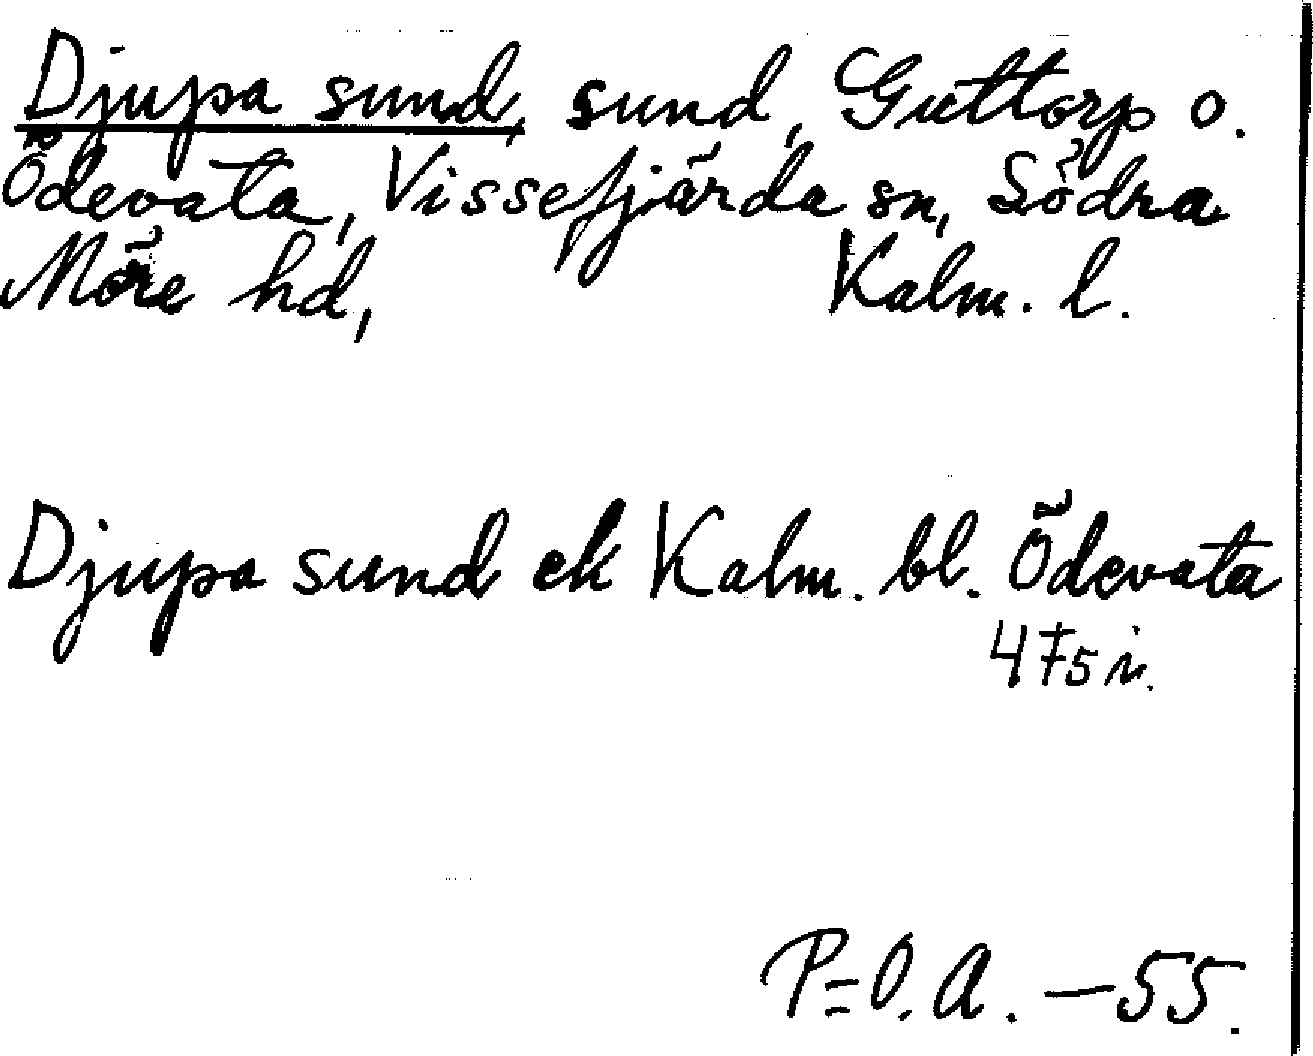 Djupa sund, sund, Guttorp o.
Ödevata, Vissefjärda sn, Södra
Möre hd, Kalm. l.
Djupa sund ek Kalm. bl. Ödevata
475 i.
P=O.A. — 55.